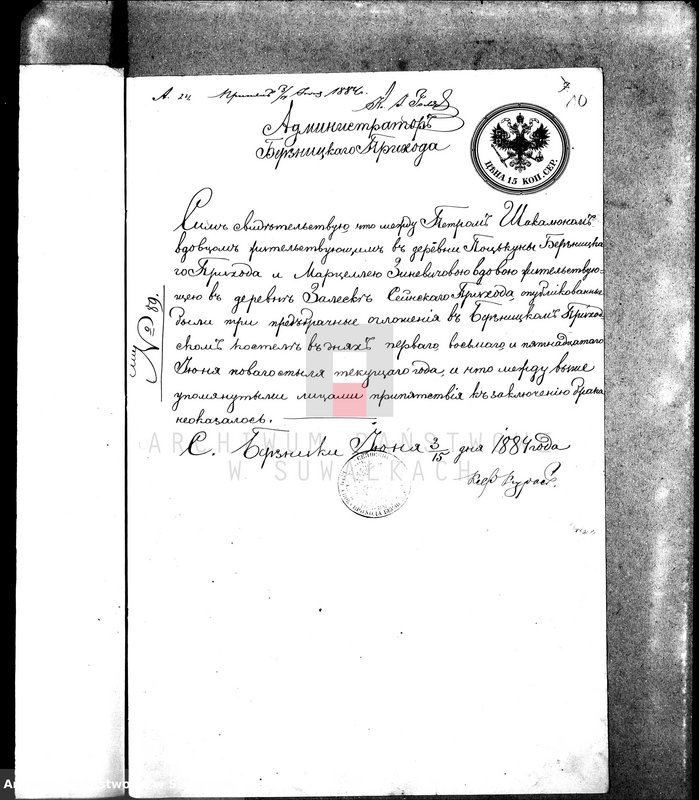 А. 24
1884.
10
Администраторъ
Берзницкаго Прихода
ЦѢНА 15 КОП. СЕР.
Симъ свидѣтельствую, что между Петромъ
вдовцомъ жительствующимъ въ деревни Поцькуны Берзницка
го Прихода и Марцеллею Зиневичовою вдовою жительствую-
щею въ деревнѣ Залескѣ Сейнскаго Прихода, опубликованны
были три предъбрачные оглошенія въ Берзницкомъ Приход-
скомъ костелѣ въ дняхъ перваго, восьмаго и пятнадцатаго
Іюня новаго стыля текущаго года, и что между выше
упомянутыми лицами припятствія къ заключенію брака
неоказалось.
№ 89.
С. Берзники Іюня 3/15 дня 1884 года
ARCHIWUM PAŃSTWOWE
W SUWAŁKACH